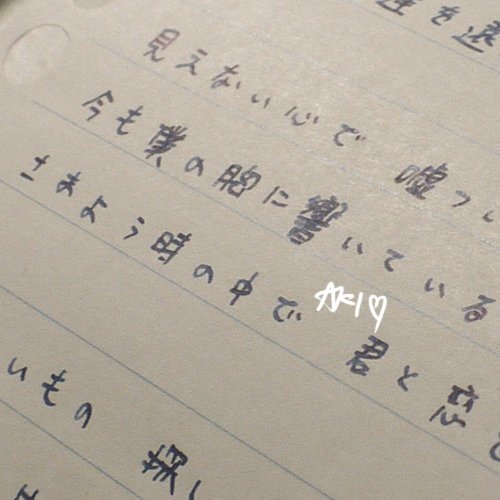 を逃
見えない心で 嘘つ
今も僕の胸に響いている
さまよう時の中で 君と恋
AKI♡
いもの 探し